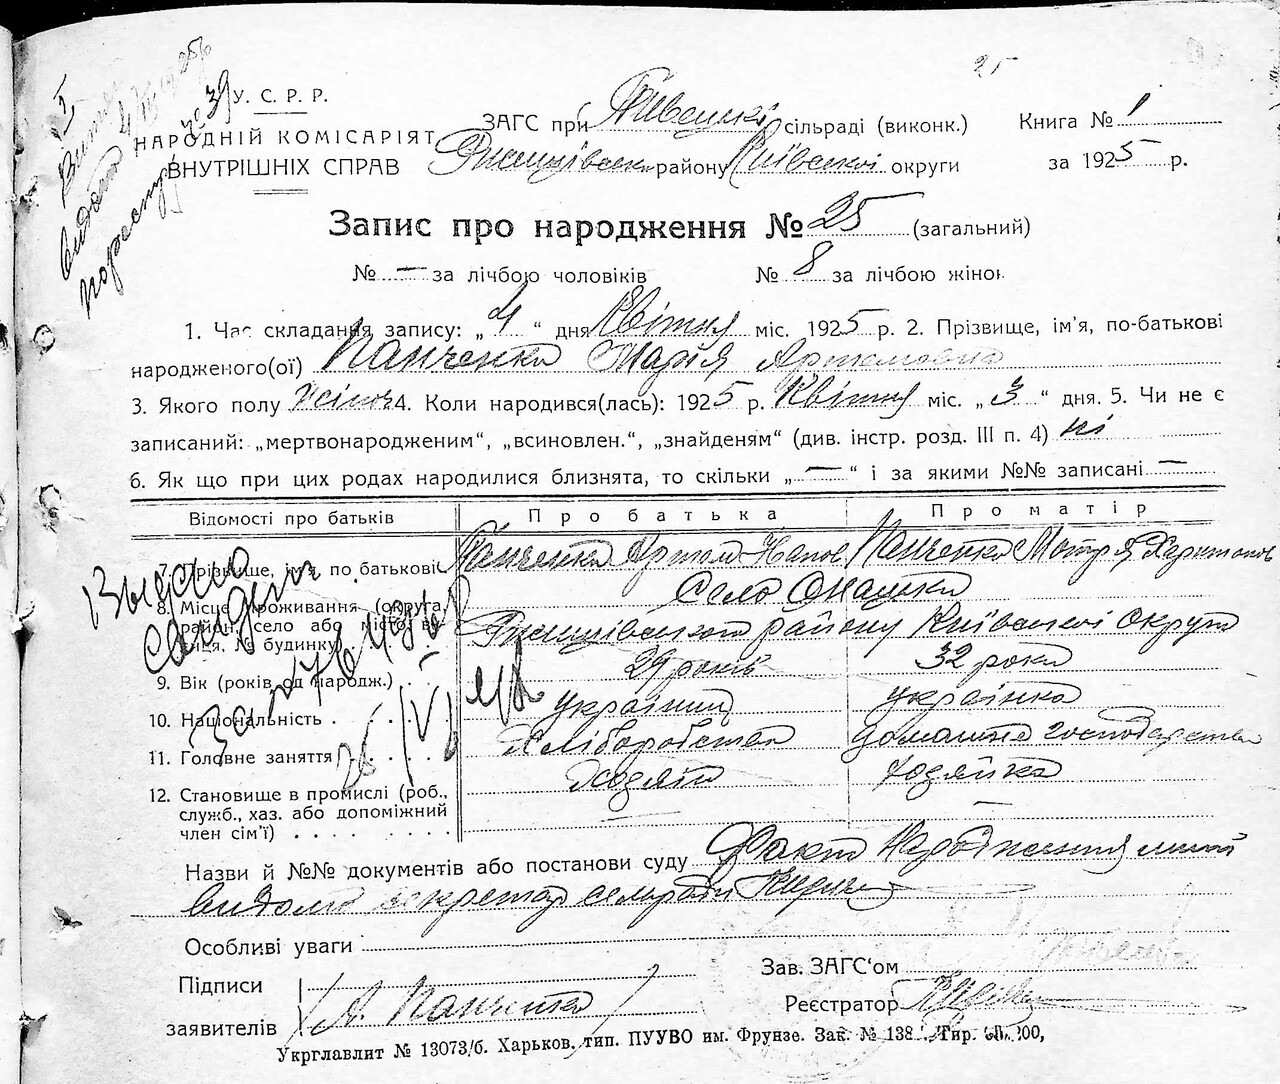 25
У. С. Р. Р.
НАРОДНІЙ КОМІСАРІЯТ
ВНУТРІШНІХ СПРАВ
№ 39
ЗАГС при сільраді (виконк.)
району Київської округи
Книга № 1
за 1925 р.
Запис про народження № 25 (загальний)
№ — за лічбою чоловіків № 8 за лічбою жінок
1. Час складання запису: „ 4 “ дня Квітня міс. 1925 р. 2. Прізвище, ім'я, по-батькові
народженого(ої) Панченко Марія Артемовна
3. Якого полу жіноч 4. Коли народився(лась): 1925 р. Квітня міс. „ 3 “ дня. 5. Чи не є
записаний: „мертвонародженим“, „всиновлен.“, „знайденям“ (див. інстр. розд. III п. 4) ні
6. Як що при цих родах народилися близнята, то скільки „ — “ і за якими №№ записані —
Відомості про батьків Про батька Про матір
7. Прізвище, ім'я, по батькові Панченко Артем Панченко Мотря Харитонов
8. Місце проживання (округа, район, село або місто, вулиця, № будинку) Село
району Київської Округи
9. Вік (років од народж.) 29 років 32 роки
10. Національність українець українка
11. Головне заняття Хліборобство домашнє господарство
12. Становище в промислі (роб., Хазяїн хазяйка
служб., хаз. або допоміжний
член сім'ї)
Назви й №№ документів або постанови суду Факт Народження мині
видомо секретар сельради
Особливі уваги
Підписи
заявителів А. Панченко
Зав. ЗАГС'ом
Реєстратор
Укрглавлит № 13073/б. Харьков, тип. ПУУВО им. Фрунзе. Зак. № 138 Тир.